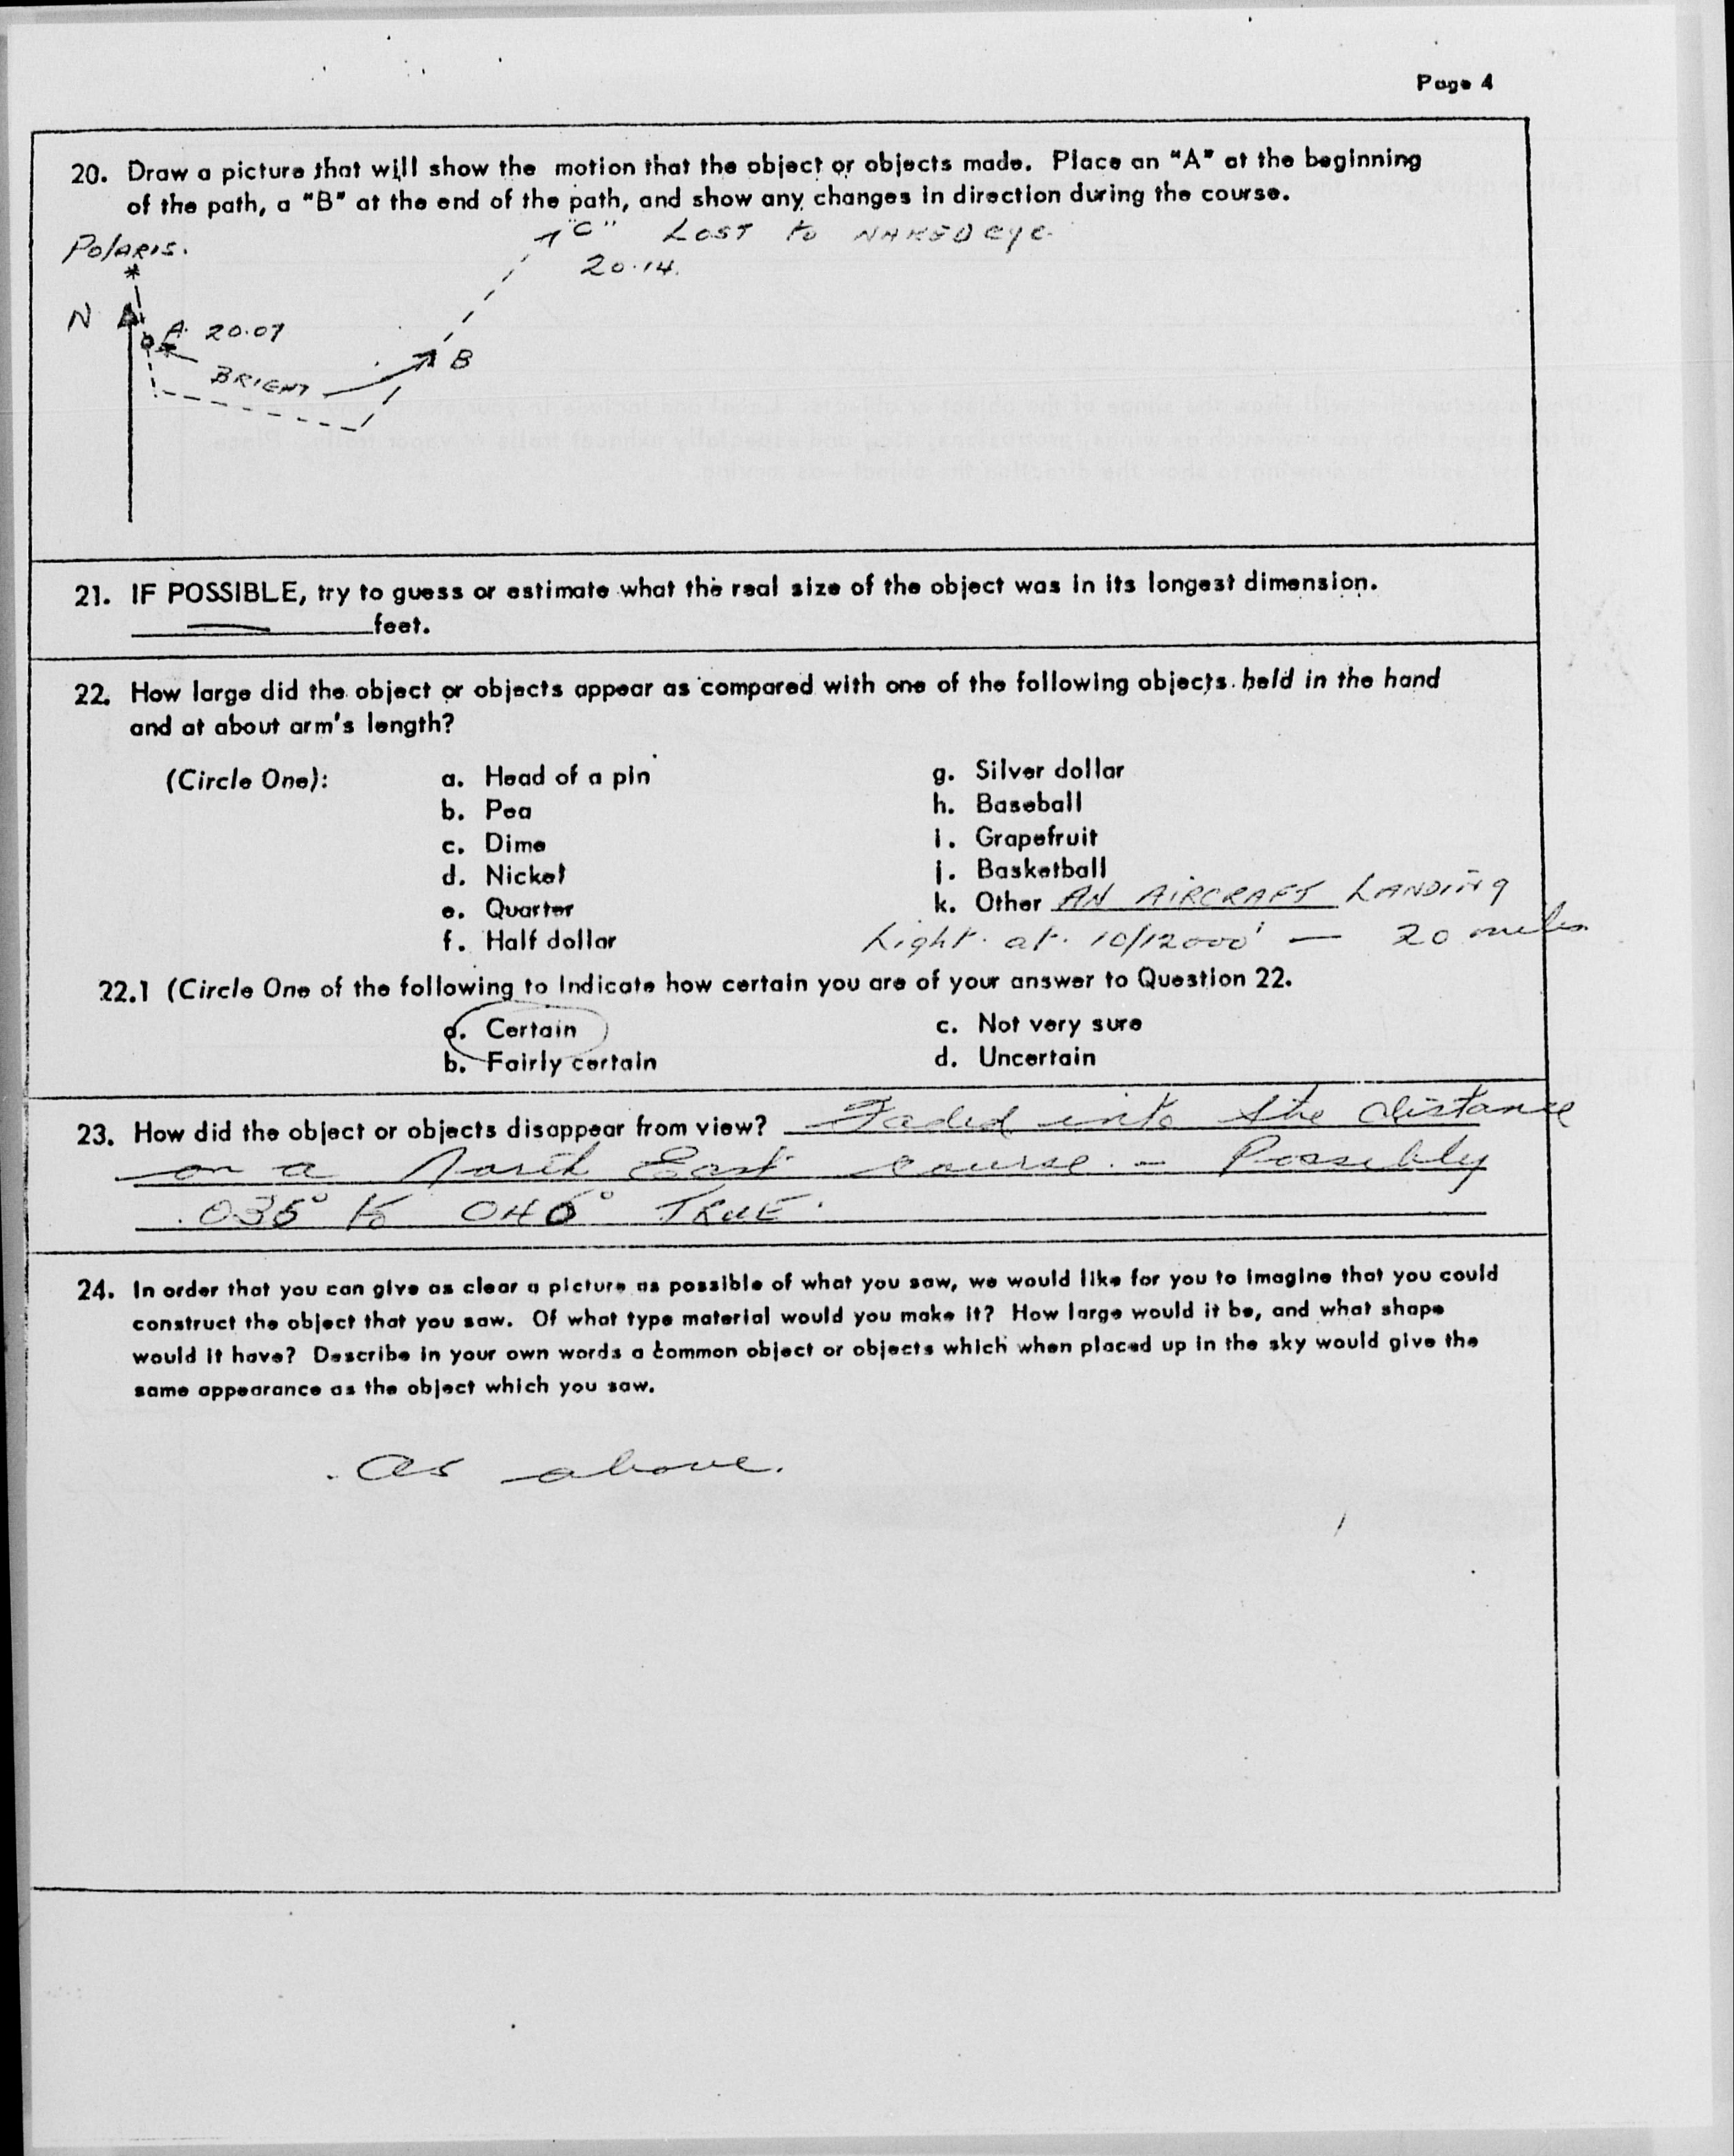 Page 4
20. Draw a picture that will show the motion that the object or objects made. Place an "A" at the beginning
of the path, a "B" at the end of the path, and show any changes in direction during the course.
"C" LOST to NAKED eye.
POLARIS.
20.14.
N
A. 20.07
BRIGHT
B
21. IF POSSIBLE, try to guess or estimate what the real size of the object was in its longest dimension.
feet.
22. How large did the object or objects appear as compared with one of the following objects held in the hand
and at about arm's length?
(Circle One):
a. Head of a pin
b. Pea
c. Dime
d. Nickel
e. Quarter
f. Half dollar
g. Silver dollar
h. Baseball
i. Grapefruit
j. Basketball
k. Other AN AIRCRAFT LANDING
Light at 10/12000' — 20 miles
22.1 (Circle One of the following to Indicate how certain you are of your answer to Question 22.
a. Certain
b. Fairly certain
c. Not very sure
d. Uncertain
23. How did the object or objects disappear from view? Faded into the distance
on a North East course. - Possibly
035° to 040° TRUE.
24. In order that you can give as clear a picture as possible of what you saw, we would like for you to imagine that you could
construct the object that you saw. Of what type material would you make it? How large would it be, and what shape
would it have? Describe in your own words a common object or objects which when placed up in the sky would give the
same appearance as the object which you saw.
as above.